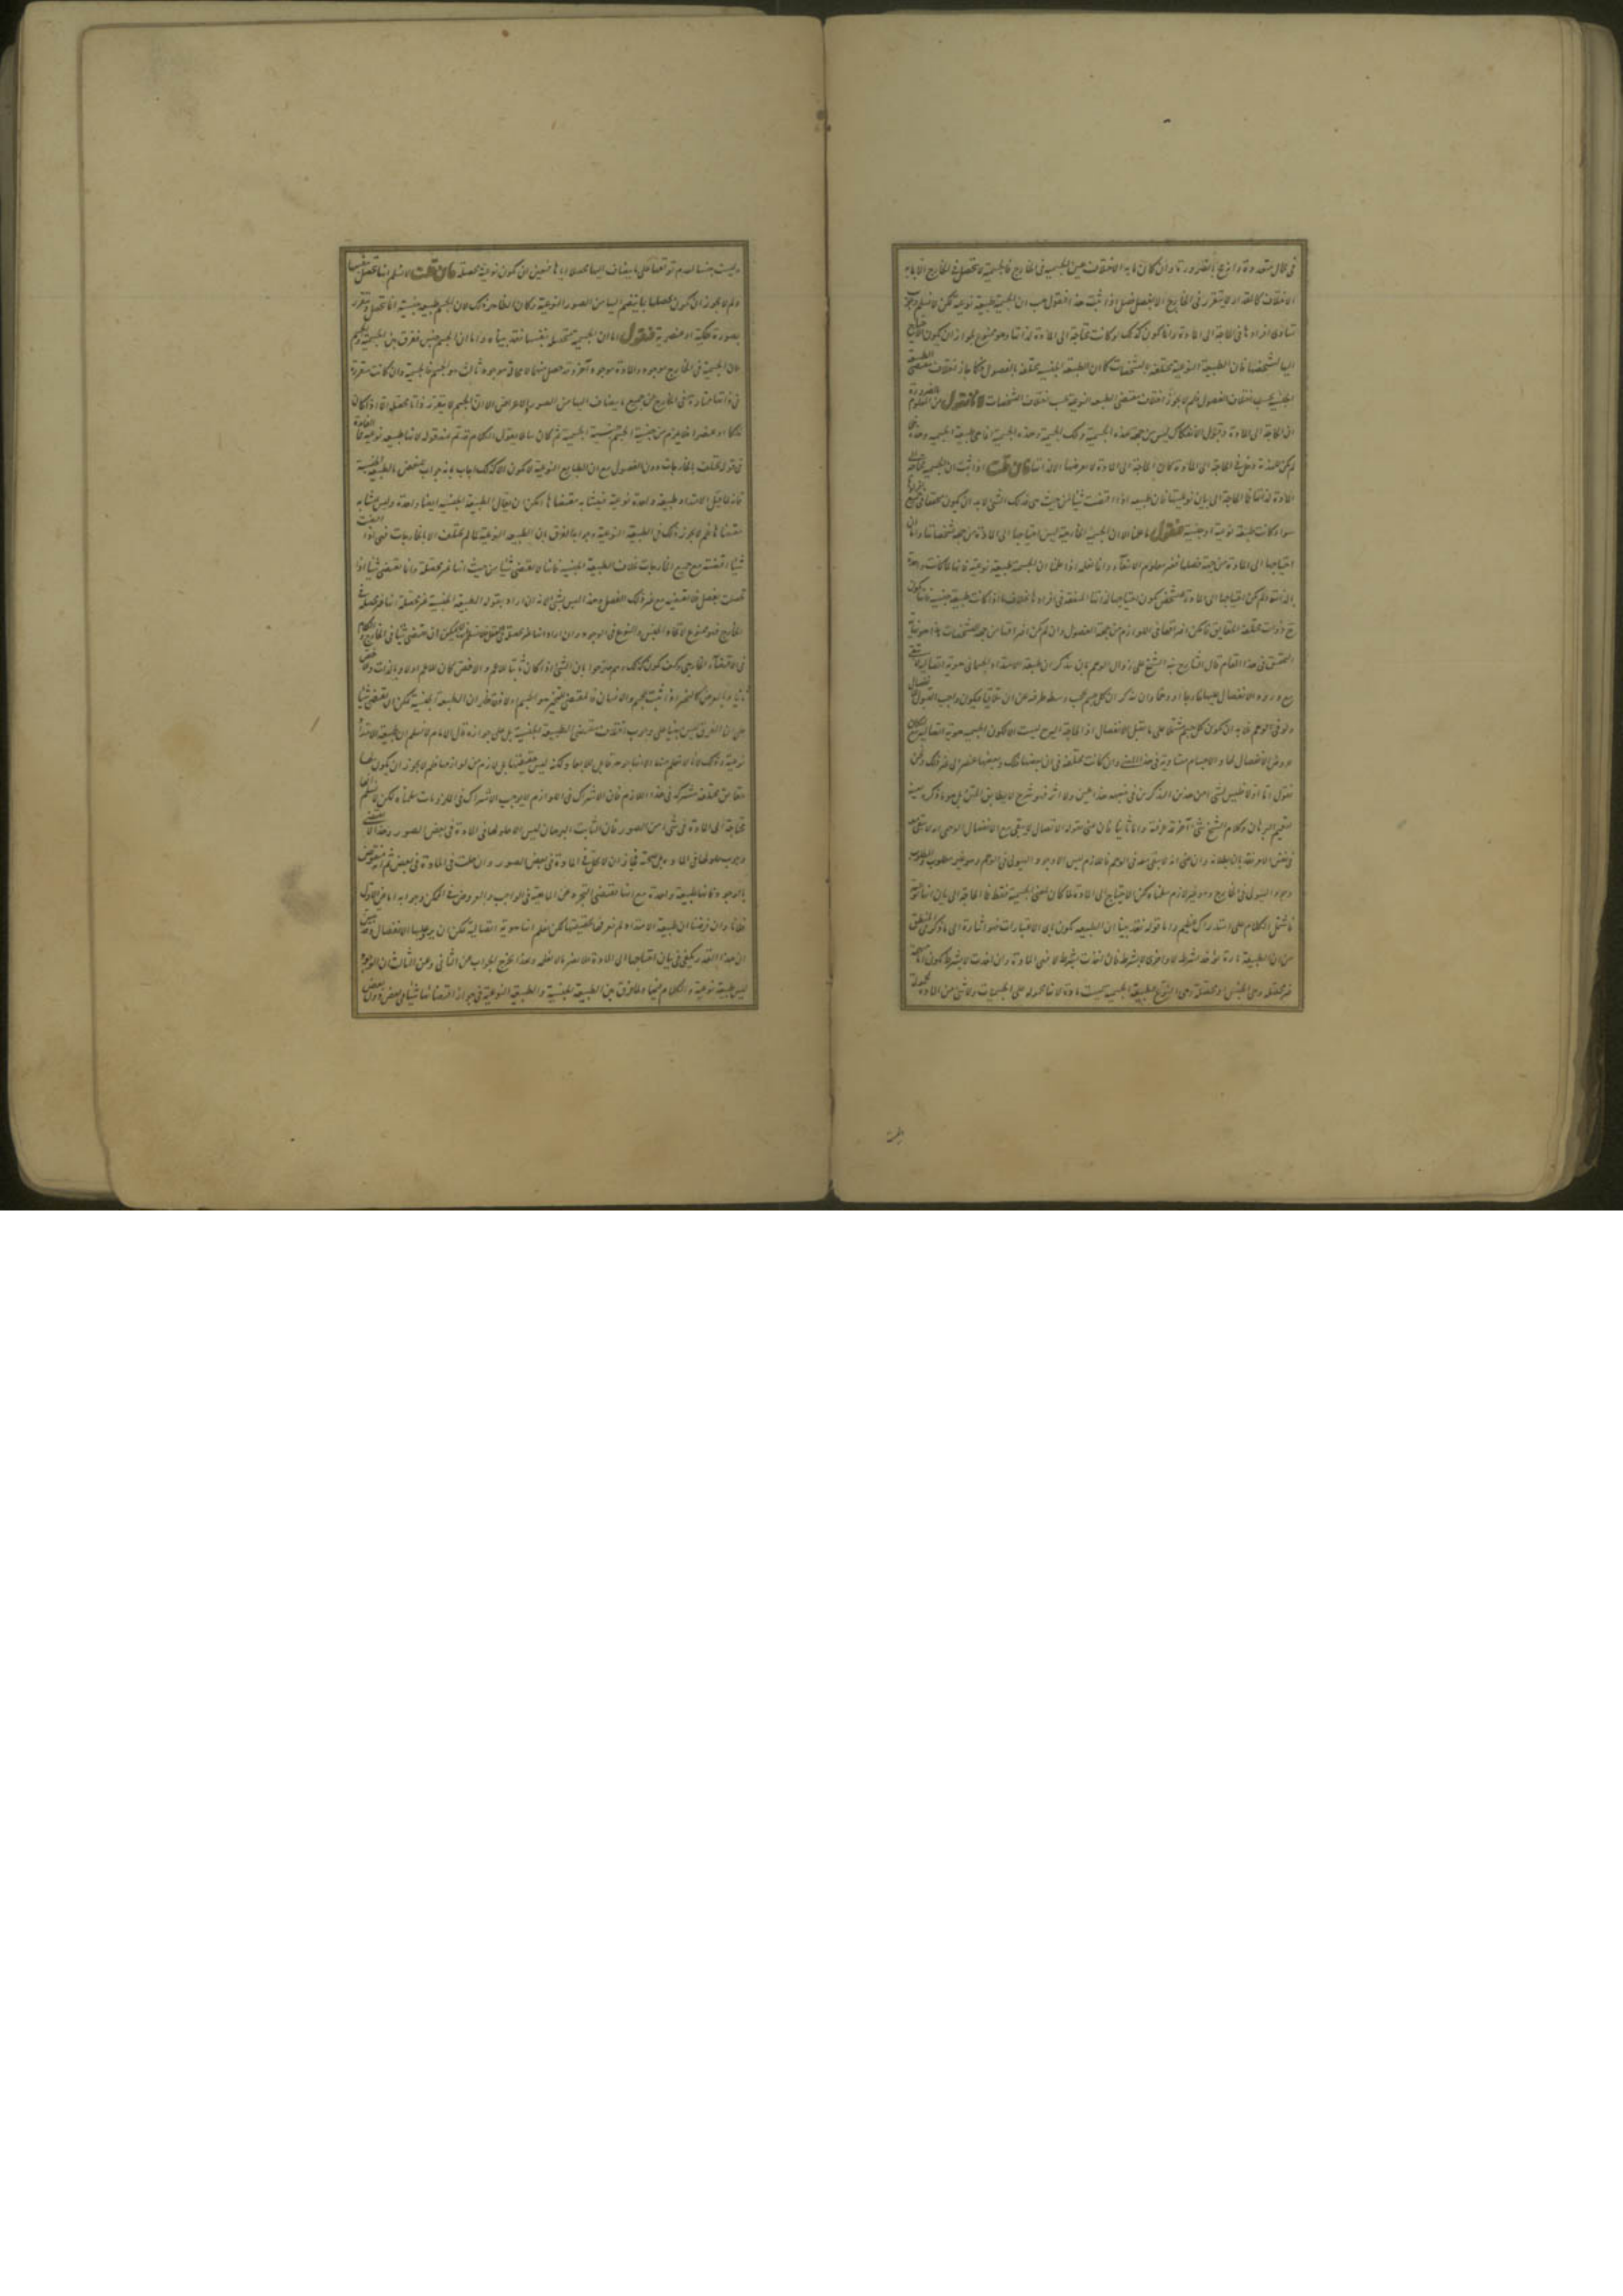 في محال متعددة وانزع بالضرورة وان كان ما به الاختلاف عين الجسمية في الخارج فالجسمية لا تتحصل في الخارج الا بما به
الاختلاف كالمقدار لا يتقرر في الخارج الا بفصل فصل اذا ثبت هذا فنقول هب ان الجسمية طبيعة نوعية لكن لا نسلم وجوب
تساوي افرادها في الحاجة الى المادة وانما يكون كذلك لو كانت محتاجة الى المادة لذاتها وهو ممنوع لجواز ان يكون الاحتياج
اليها لتشخصها فان الطبيعة النوعية مختلفة بالتشخصات كما ان الطبيعة الجنسية مختلفة بالفصول فكما جاز اختلاف مقتضى الطبيعة
الجنسية بحسب اختلاف الفصول فلم لا يجوز اختلاف مقتضى الطبيعة النوعية بحسب اختلاف التشخصات لانا نقول من المعلوم بالضرورة
ان الحاجة الى المادة وقبول الانفكاك ليس من جهة هذه الجسمية وتلك الجسمية وهذه الجسمية انما هي طبيعة الجسمية وهذه
لم يكن للهذية دخل في الحاجة الى المادة كان الحاجة الى المادة لا تعرضها الا لذاتها فان قلت اذا ثبت ان الجسمية محتاجة الى
المادة لذاتها فلا حاجة الى بيان نوعيتها فان طبيعة اذا اقتضت شيئا من حيث هي فذلك الشيء لا بد ان يكون متحققا في جميع افرادها
سواء كانت طبيعة نوعية او جنسية فنقول ما علمنا الا ان الجسمية الخارجية ليس احتياجها الى المادة من جهة تشخصاتها واما ان
احتياجها الى المادة من جهة فصلها فغير معلوم الانتفاء وانما نعلمه اذا علمنا ان الجسمية طبيعة نوعية فانها لما كانت واحدة
بالذات ولم يكن احتياجها الى المادة للتشخص يكون احتياجها لذاتها المتفقة في افرادها بخلاف ما اذا كانت طبيعة جنسية فانها تكون
ح ذوات مختلفة الحقايق فامكن افتراقها في اللوازم من جهة الفصول وان لم يكن افتراقها من جهة التشخصات هذا هو نهاية
التحقيق في هذا المقام قال الشارح نبه الشيخ على زوال الوهم بان تذكر ان طبيعة الامتداد الجسماني هوية اتصالية
مع ورود الانفصال عليها خارجا او وهما وان تذكر ان كل جسم يحجب وسطه طرفيه عن ان تتلاقيا فيكون واجب القبول للانفصال
ولو في الوهم فلا بد ان يكون كل جسم مشتملا على ما يقبل الانفصال اذ الحاجة اليه ليست الا لكون الجسمية هوية اتصالية مع امكان
عروض الانفصال لها والاجسام متساوية في هذا المعنى وان كانت مختلفة في ان بعضها فلك وبعضها عنصر الى غير ذلك ونحن
نقول اما اولا فليس لشيء من هذين التذكرين في تنبيهه هذا عين ولا اثر فهو شرح لا يطابق المتن بل هو ما ذكره بعينه
لتعميم البرهان وكلام الشيخ شيء آخر قد عرفته واما ثانيا فان عنى بقوله الاتصال لا يبقى مع الانفصال الوهمي انه لا يبقى معه
في نفس الامر فقد بان بطلانه وان عنى انه لا يبقى معه في الوهم فاللازم ليس الا وجود الهيولى في الوهم وهو غير مطلوب والمطلوب
وجود الهيولى في الخارج وهو غير لازم سلمناه لكن الاحتياج الى المادة لما كان لمعنى الجسمية فقط فلا حاجة الى بيان انها نوعية
فاشتمل الكلام على استدراك عظيم واما قوله فقد بينا ان الطبيعة يكون باي الاعتبارات فهو اشارة الى ما ذكره في المنطق
من ان الطبيعة تارة تؤخذ بشرط لا واخرى لا بشرط فان اخذت بشرط لا فهي المادة وان اخذت لا بشرط يكون اما مبهمة
غير محصلة وهي الجنس او محصلة وهي النوع فالطبيعة الجسمية ليست مادة لانها محمولة على الجسميات ولا شيء من المادة بمحمولة
وليست جنسا لعدم توقفها على ما يضاف اليها محصلا اياها فتعين ان يكون نوعية محصلة فان قلت لا نسلم انها تتحصل بنفسها
ولم لا يجوز ان يكون تحصلها بما ينضم اليها من الصور النوعية وكان الظاهر ذلك لان الجسم طبيعة جنسية انما تتحصل وتتقرر
بصورة فلكية او عنصرية فنقول اما ان الجسمية متحصلة بنفسها فقد بيناه واما ان الجسم جنس ففرق بين الجسمية والجسم
فان الجسمية في الخارج موجودة والمادة موجودة آخر وقد حصل منهما لا محالة موجود ثالث هو الجسم فالجسمية وان كانت متقررة
في ذاتها ممتازة في الخارج عن جميع ما يضاف اليها من الصور والاعراض الا ان الجسم لا يتقرر ذاتا محصلة الا اذا كان
فلكا او عنصرا فلا يلزم من جنسية الجسم جنسية الجسمية ثم كان سائلا يقول الكلام قد تم عند قوله لانها طبيعة نوعية فما الفائدة
في قوله تختلف بالخارجيات دون الفصول مع ان الطبايع النوعية لا يكون الا كذلك اجاب بانه جواب لنقض بالطبيعة الجنسية
فانه لما قيل الامتداد طبيعة واحدة نوعية فيتشابه مقتضاها امكن ان يقال الطبيعة الجنسية ايضا واحدة وليس متشابه
مقتضاها فلم لا يجوز ذلك في الطبيعة النوعية وجوابه الفرق بان الطبيعة النوعية لما لم تختلف الا بالخارجيات فهي اذا اقتضت
شيئا اقتضته مع جميع الخارجيات بخلاف الطبيعة الجنسية فانها لا تقتضي شيئا من حيث انها غير محصلة وانما تقتضي شيئا اذا
تحصلت بفصل فلا تقتضيه مع غير ذلك الفصل وهذا ليس بشيء لانه ان اراد بقوله الطبيعة الجنسية غير محصلة انها غير محصلة في
الخارج فهو ممنوع لاتحاد الجنس والنوع في الوجود وان اراد انها غير محصلة في العقل فمسلم لكن لا يمكن ان تقتضي شيئا في الخارج والكلام
في الاقتضاء الخارجي وكيف يكون كذلك وهم صرحوا بان الشيء اذا كان ثابتا للاعم والاخص كان للاعم اولا وبالذات وللاخص
ثانيا وبالعرض كالتحيز اذا ثبت للجسم والانسان فالمقتضي للتحيز هو الجسم اولا فقد ظهر ان الطبيعة الجنسية يمكن ان تقتضي شيئا
على ان الفرق ليس مبنيا على وجوب اختلاف مقتضى الطبيعة الجنسية بل على جوازه قال الامام لا نسلم ان طبيعة الامتداد
نوعية وذلك لانا لا نعلم منها الا انها جوهر قابل للابعاد وكانه ليس حقيقتها بل لازم من لوازمها فلم لا يجوز ان يكون لها
حقايق مختلفة مشتركة في هذا اللازم فان الاشتراك في اللوازم لا يوجب الاشتراك في الملزومات سلمناه لكن لا نسلم انها
محتاجة الى المادة في شيء من الصور فان الثابت بالبرهان ليس الا حلولها في المادة في بعض الصور وهذا لا يقتضي
وجوب حلولها في المادة بل صحته فجاز ان لا تحل في المادة في بعض الصور وان حلت في المادة في بعض ثم انه منقوض
بالوجود فانه طبيعة واحدة مع انها تقتضي التجرد عن الماهية في الواجب والعروض في الممكن وجوابه اما عن الاول
فلانا وان فرضنا ان طبيعة الامتداد لم نعرفها بحقيقتها لكن نعلم انها هوية اتصالية يمكن ان يرد عليها الانفصال وقد تبين
ان هذا القدر يكفي في بيان احتياجها الى المادة فلا يضر ما لا نعلمه وهذا يخرج الجواب عن الثاني وعن الثالث ان الوجود
ليس طبيعة نوعية والكلام فيها والفرق بين الطبيعة الجنسية والطبيعة النوعية في جواز اقتضائها شيئا في بعض دون بعض